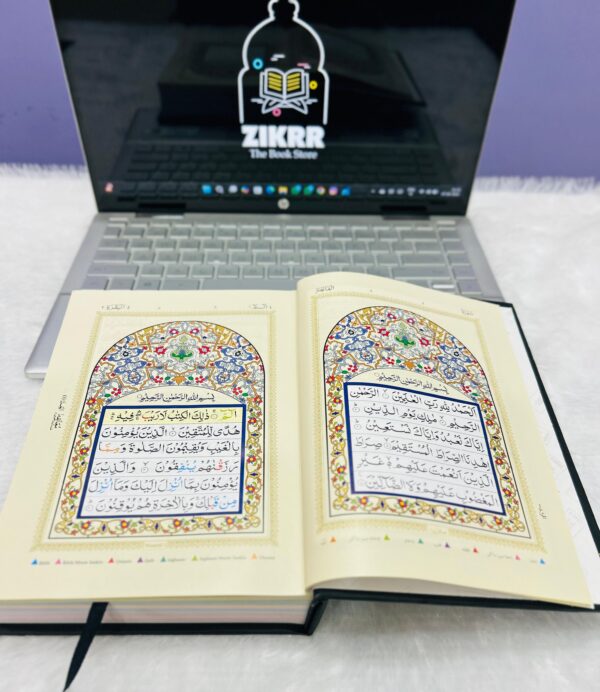 ZIKRR
The Book Store
hp
بِسْمِ اللهِ الرَّحْمٰنِ الرَّحِيْمِ
اَلْحَمْدُ لِلّٰهِ رَبِّ الْعٰلَمِيْنَ ۙ الرَّحْمٰنِ
الرَّحِيْمِ ۙ مٰلِكِ يَوْمِ الدِّيْنِ ؕ
اِيَّاكَ نَعْبُدُ وَاِيَّاكَ نَسْتَعِيْنُ ؕ
اِهْدِنَا الصِّرَاطَ الْمُسْتَقِيْمَ ۙ صِرَاطَ
الَّذِيْنَ اَنْعَمْتَ عَلَيْهِمْ ۙ غَيْرِ
الْمَغْضُوْبِ عَلَيْهِمْ وَلَا الضَّآلِّيْنَ
بِسْمِ اللهِ الرَّحْمٰنِ الرَّحِيْمِ
الٓمّٓ ۚ ذٰلِكَ الْكِتٰبُ لَا رَيْبَ ۛ فِيْهِ ۛ
هُدًى لِّلْمُتَّقِيْنَ ۙ الَّذِيْنَ يُؤْمِنُوْنَ
بِالْغَيْبِ وَيُقِيْمُوْنَ الصَّلٰوةَ وَمِمَّا
رَزَقْنٰهُمْ يُنْفِقُوْنَ ۙ وَالَّذِيْنَ
يُؤْمِنُوْنَ بِمَآ اُنْزِلَ اِلَيْكَ وَمَآ اُنْزِلَ
مِنْ قَبْلِكَ ۚ وَبِالْاٰخِرَةِ هُمْ يُوْقِنُوْنَ